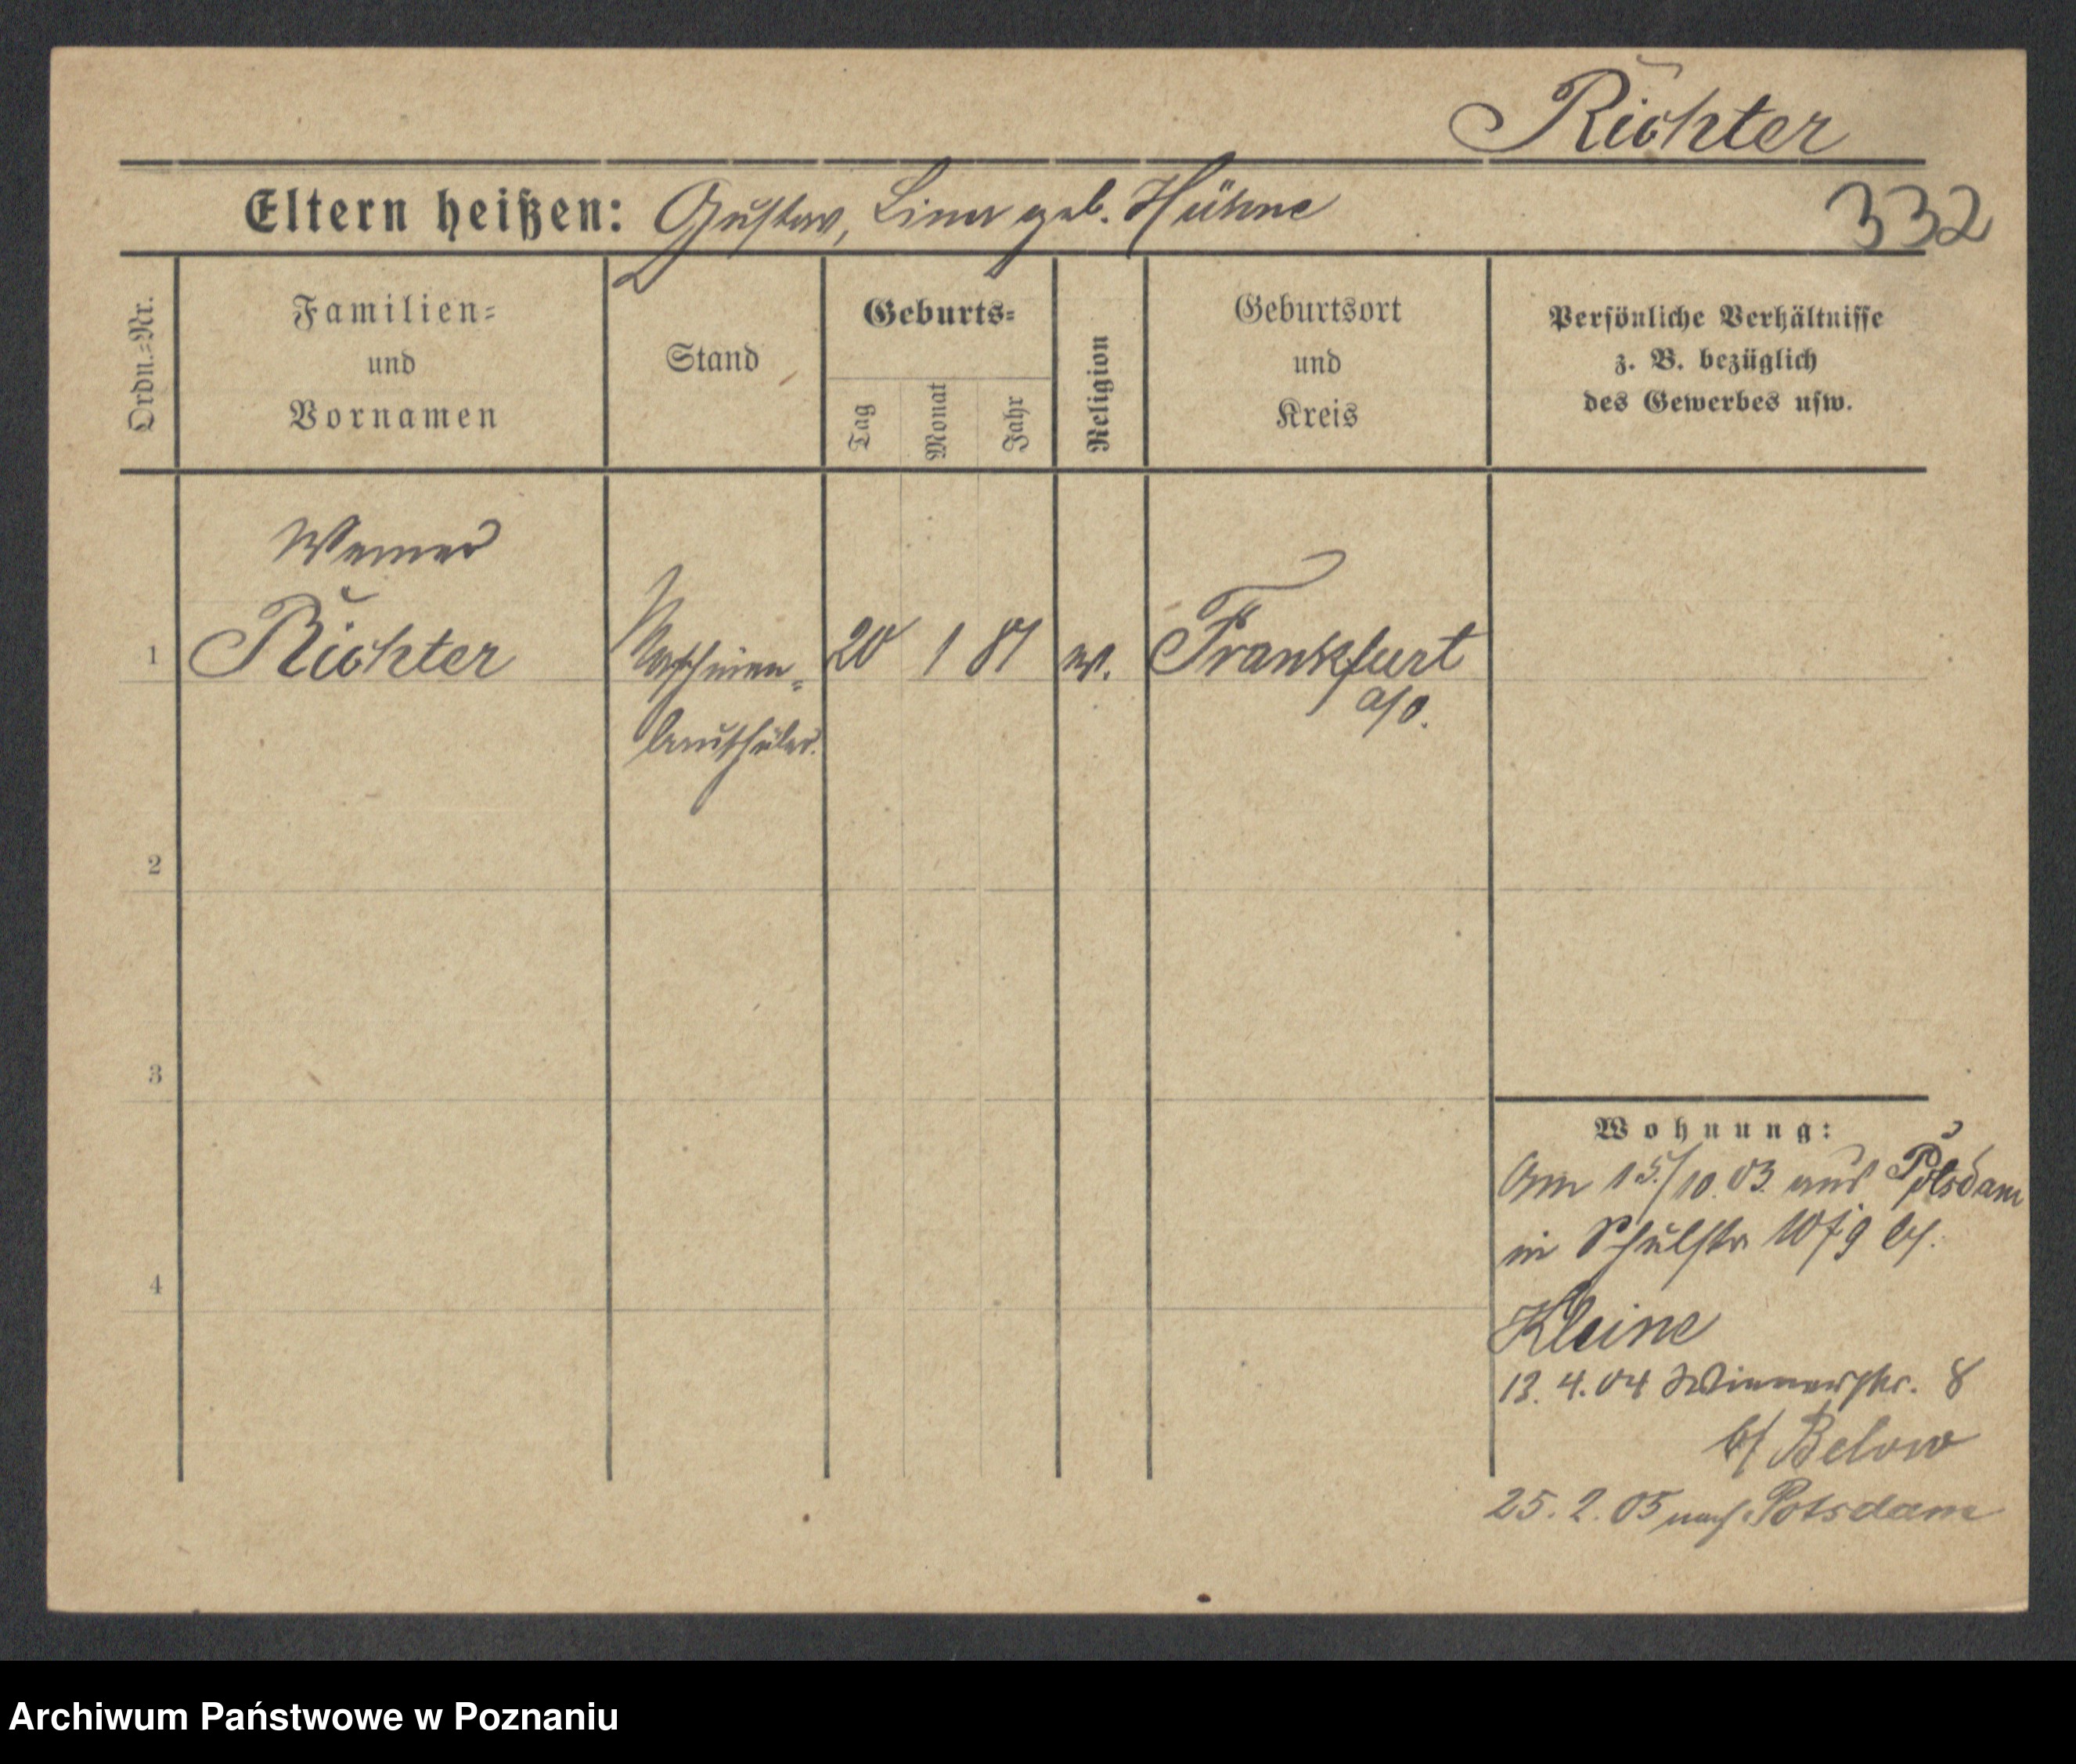 Richter
Eltern heißen: Gustav, Lina geb. Hühne
332
Ordn.=Nr.
Familien=
und
Vornamen
Stand
Geburts=
Tag
Monat
Jahr
Religion
Geburtsort
und
Kreis
Persönliche Verhältnisse
z. B. bezüglich
des Gewerbes usw.
Werner
1 Richter Maschinen= 20 1 81 ev. Frankfurt
bauschüler. a/O.
2
3
4
Wohnung:
Am 15./10.03. aus Potsdam
in Schulstr 10 bei
Kleine
13. 4. 04 Wienerstr. 8
b/ Below
25. 2. 05 nach Potsdam
Archiwum Państwowe w Poznaniu